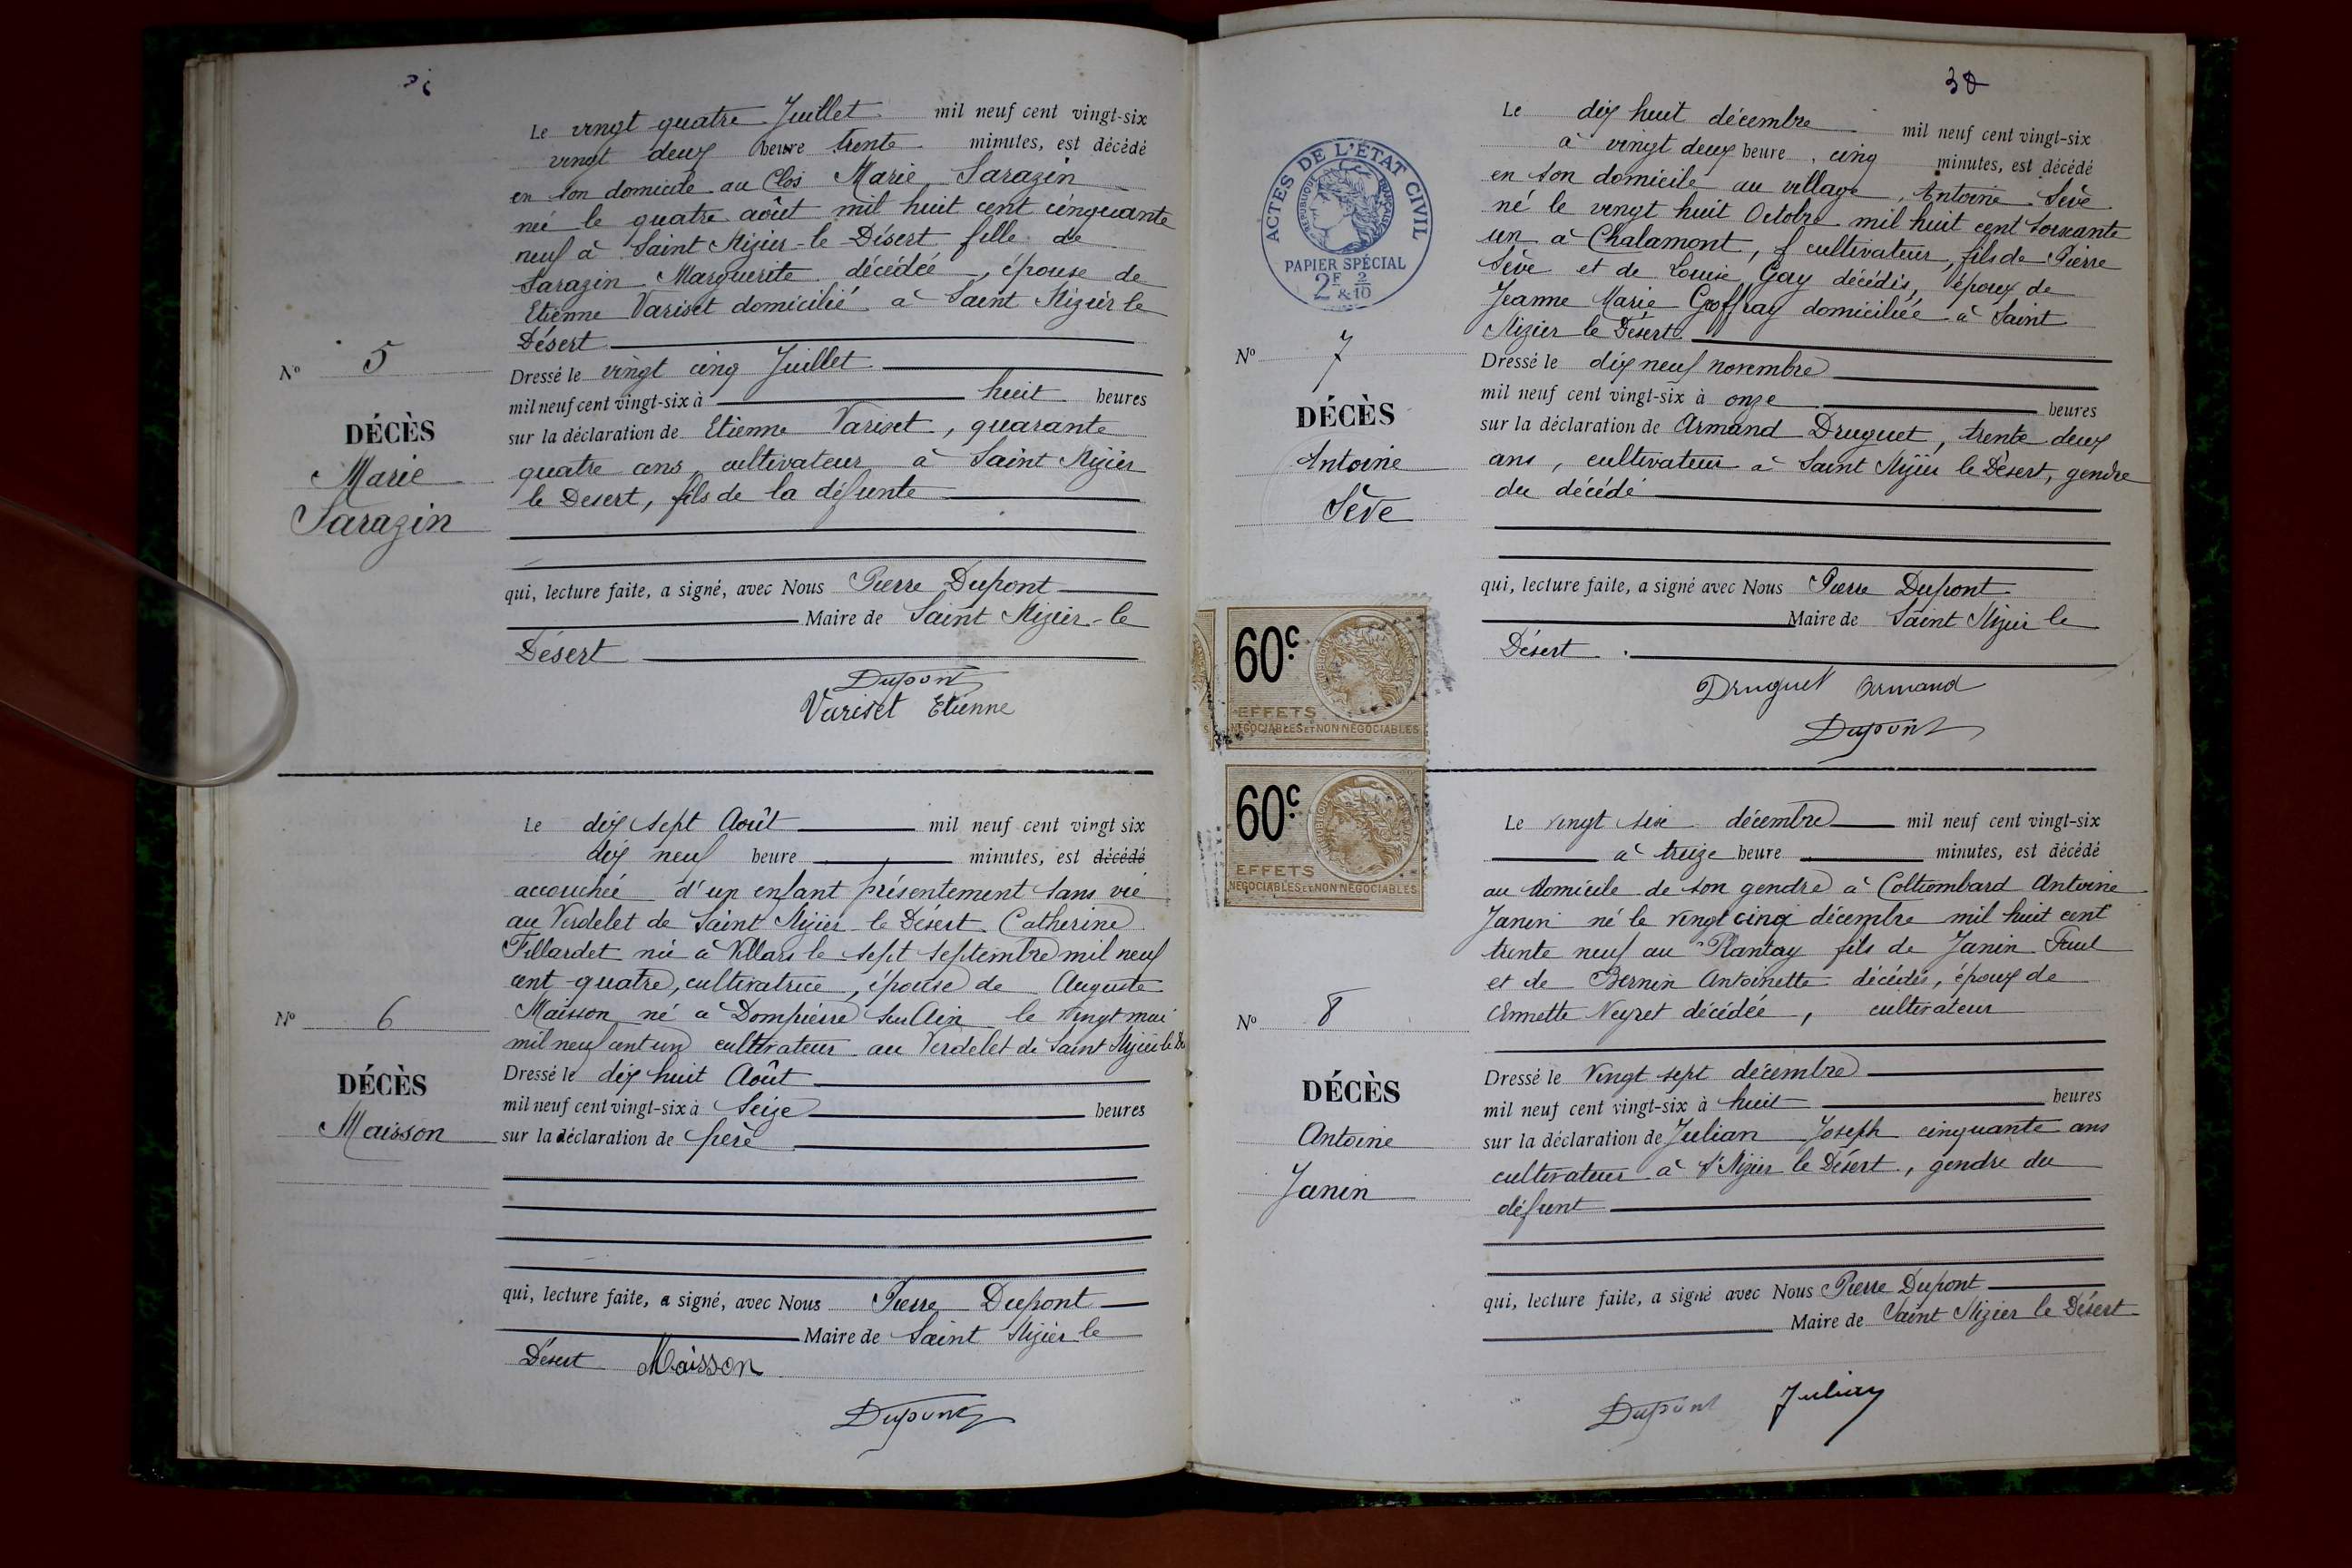 Le vingt quatre Juillet mil neuf cent vingt-six
vingt deux heure trente minutes, est décédé
en son domicile au Clos Marie Sarazin
née le quatre août mil huit cent cinquante
neuf à Saint Nizier-le-Désert fille de
Sarazin Marguerite décédée, épouse de
Etienne Variset domicilié à Saint Nizier le
Désert
N° 5
DÉCÈS
Marie
Sarazin
Dressé le vingt cinq Juillet
mil neuf cent vingt-six à huit heures
sur la déclaration de Etienne Variset, quarante
quatre ans cultivateur à Saint Nizier
le Desert, fils de la défunte
qui, lecture faite, a signé, avec Nous Pierre Dupont
Maire de Saint Nizier-le
Désert
Dupont
Variset Etienne
Le dix sept Août mil neuf cent vingt six
dix neuf heure minutes, est décédé
accouchée d'un enfant présentement sans vie
au Verdelet de Saint Nizier le Désert Catherine
Fillardet née à Villars le sept septembre mil neuf
cent quatre, cultivatrice, épouse de Auguste
Maisson né à Dompierre sur Ain le vingt mai
mil neuf cent un cultivateur au Verdelet de Saint Nizier le
N° 6
DÉCÈS
Maisson
Dressé le dix huit Août
mil neuf cent vingt-six à Seize heures
sur la déclaration de père
qui, lecture faite, a signé, avec Nous Pierre Dupont
Maire de Saint Nizier le
Désert Maisson
Dupont
38
ACTES DE L'ÉTAT CIVIL
RÉPUBLIQUE FRANÇAISE
PAPIER SPÉCIAL
2F & 2/10
Le dix huit décembre mil neuf cent vingt-six
à vingt deux heure cinq minutes, est décédé
en son domicile au village, Antoine Sève
né le vingt huit Octobre mil huit cent soixante
un à Chalamont, cultivateur, fils de Pierre
Sève et de Louise Gay décédés, époux de
Jeanne Marie Groffray domiciliée à Saint
Nizier le Désert
N° 7
DÉCÈS
Antoine
Sève
Dressé le dix neuf novembre
mil neuf cent vingt-six à onze heures
sur la déclaration de Armand Druguet, trente deux
ans, cultivateur à Saint Nizier le Désert, gendre
du décédé
qui, lecture faite, a signé avec Nous Pierre Dupont
Maire de Saint Nizier le
Désert.
Druguet Armand
Dupont
60c
EFFETS
NÉGOCIABLES ET NON NÉGOCIABLES
60c
EFFETS
NÉGOCIABLES ET NON NÉGOCIABLES
Le vingt six décembre mil neuf cent vingt-six
à treize heure minutes, est décédé
au domicile de son gendre à Coltiombard Antoine
Janin né le vingt cinq décembre mil huit cent
trente neuf au Plantay fils de Janin
et de Bernin Antoinette décédés, époux de
Annette Neyret décédée, cultivateur
N° 8
DÉCÈS
Antoine
Janin
Dressé le Vingt sept décembre
mil neuf cent vingt-six à huit heures
sur la déclaration de Julian Joseph cinquante ans
cultivateur à St Nizier le Désert, gendre du
défunt
qui, lecture faite, a signé avec Nous Pierre Dupont
Maire de Saint Nizier le Désert
Dupont Julian